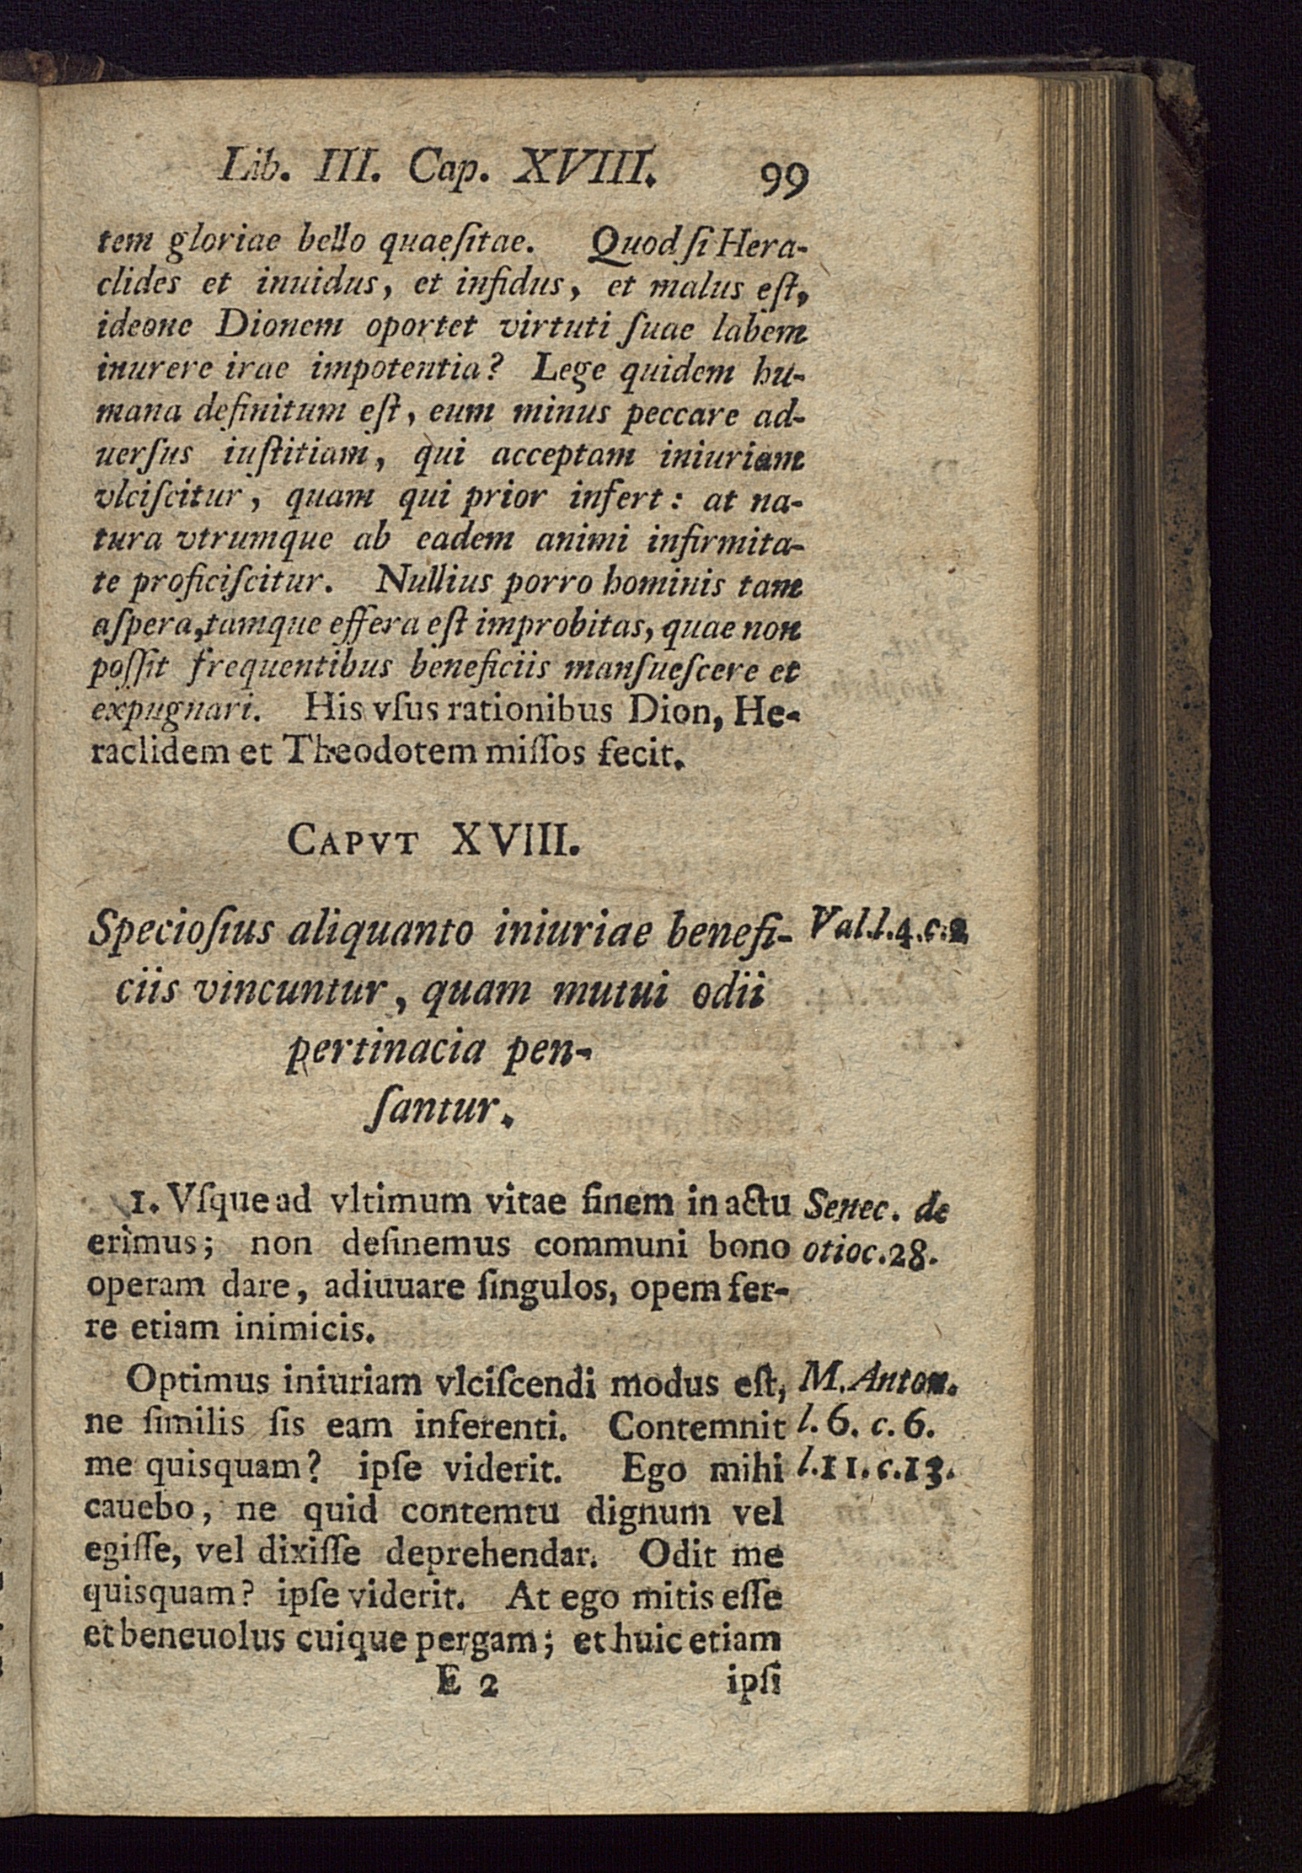 Lib. III. Cap. XVIII. 99
tem gloriae bello quaeſitae. Quod ſi Hera-
clides et inuidus, et infidus, et malus eſt,
ideone Dionem oportet virtuti ſuae labem
inurere irae impotentia? Lege quidem hu-
mana definitum eſt, eum minus peccare ad-
uerſus iuſtitiam, qui acceptam iniuriam
vlciſcitur, quam qui prior infert: at na-
tura vtrumque ab eadem animi infirmita-
te proficiſcitur. Nullius porro hominis tam
aſpera, tamque effera eſt improbitas, quae non
poſſit frequentibus beneficiis manſueſcere et
expugnari. His vſus rationibus Dion, He-
raclidem et Theodotem miſſos fecit.
CAPVT XVIII.
Specioſius aliquanto iniuriae benefi- Val. l. 4. c. 2
ciis vincuntur, quam mutui odii
pertinacia pen-
ſantur.
1. Vſque ad vltimum vitae finem in actu Senec. de
erimus; non deſinemus communi bono otio c. 28.
operam dare, adiuuare ſingulos, opem fer-
re etiam inimicis.
Optimus iniuriam vlciſcendi modus eſt, M. Anton.
ne ſimilis ſis eam inferenti. Contemnit l. 6. c. 6.
me quisquam? ipſe viderit. Ego mihi l. 11. c. 13.
cauebo, ne quid contemtu dignum vel
egiſſe, vel dixiſſe deprehendar. Odit me
quisquam? ipſe viderit. At ego mitis eſſe
et beneuolus cuique pergam; et huic etiam
E 2 ipſi